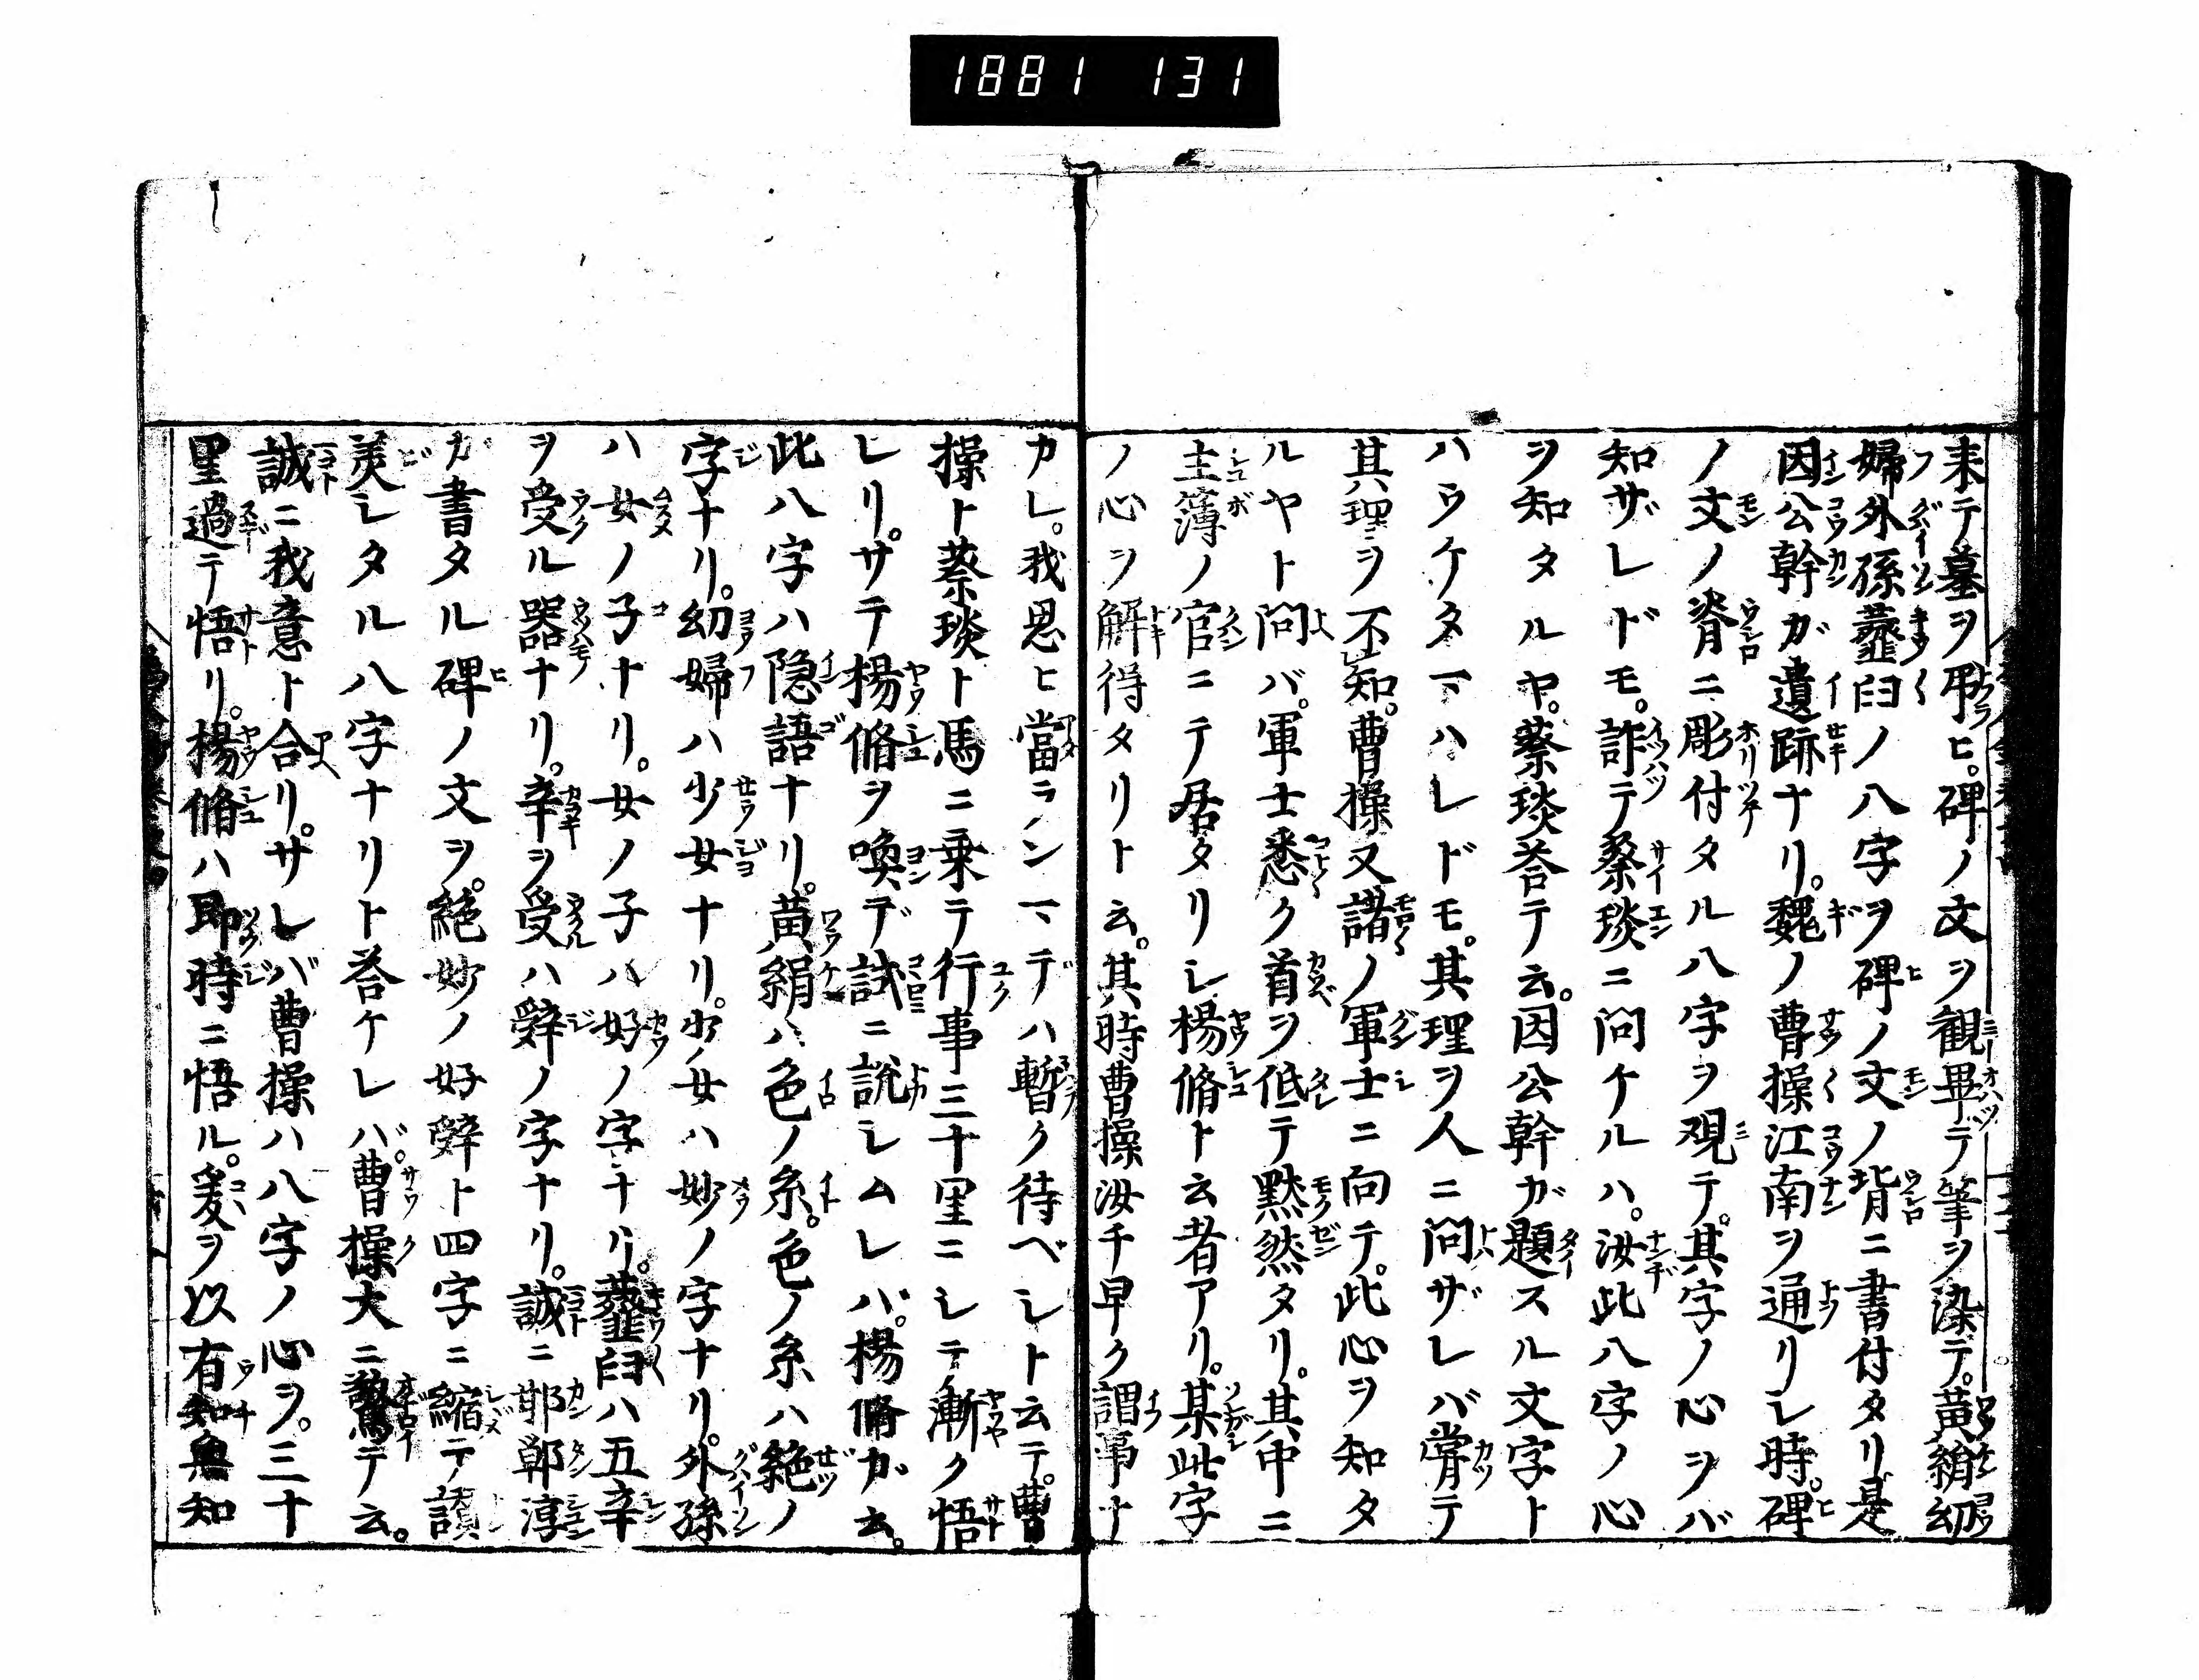 1881 131
来テ墓ヲ弔ヒ。碑ノ文ヲ観畢デ筆ヲ染テ。黄絹幼
婦外孫虀臼ノ八字ヲ碑ノ文ノ背ニ書付タリ是
因公幹ガ遺跡ナリ。魏ノ曹操江南ヲ通リシ時。碑
ノ文ノ脊ニ彫付タル八字ヲ覌テ。其字ノ心ヲバ
知ザレドモ。詐テ蔡琰ニ問ケルハ。汝此八字ノ心
ヲ知タルヤ。蔡琰荅テ云。因公幹ガ題スル文字ト
ハウケタマハレドモ。其理ヲ人ニ問ザレバ甞テ
其理ヲ不知。曹操又諸ノ軍士ニ向テ。此心ヲ知タ
ルヤト問バ。軍士悉ク首ヲ低テ黙然タリ。其中ニ
主簿ノ官ニテ居タリシ楊脩ト云者アリ。某此字
ノ心ヲ解得タリト云。其時曹操汝千早ク謂事ナ
カレ。我思ヒ當ランマデハ暫ク待ベシト云テ。曹
操ト蔡琰ト馬ニ乗テ行事三十里ニシテ漸ク悟
レリ。サテ楊脩ヲ喚デ試ニ説シムレバ。楊脩ガ云。
此八字ハ隠語ナリ。黄絹ハ色ノ糸。色ノ糸ハ絶ノ
字ナリ。幼婦ハ少女ナリ。少ノ女ハ妙ノ字ナリ。外孫
ハ女ノ子ナリ。女ノ子ハ好ノ字ナリ。虀臼ハ五辛
ヲ受ル器ナリ。辛ヲ受ハ辤ノ字ナリ。誠ニ邯鄲淳
ガ書タル碑ノ文ヲ。絶妙ノ好辤ト四字ニ縮テ讃
美シタル八字ナリト荅ケレバ。曹操大ニ驚テ云。
誠ニ我意ト合リ。サレバ曹操ハ八字ノ心ヲ。三十
里過テ悟リ。楊脩ハ即時ニ悟ル。爰ヲ以有知無知